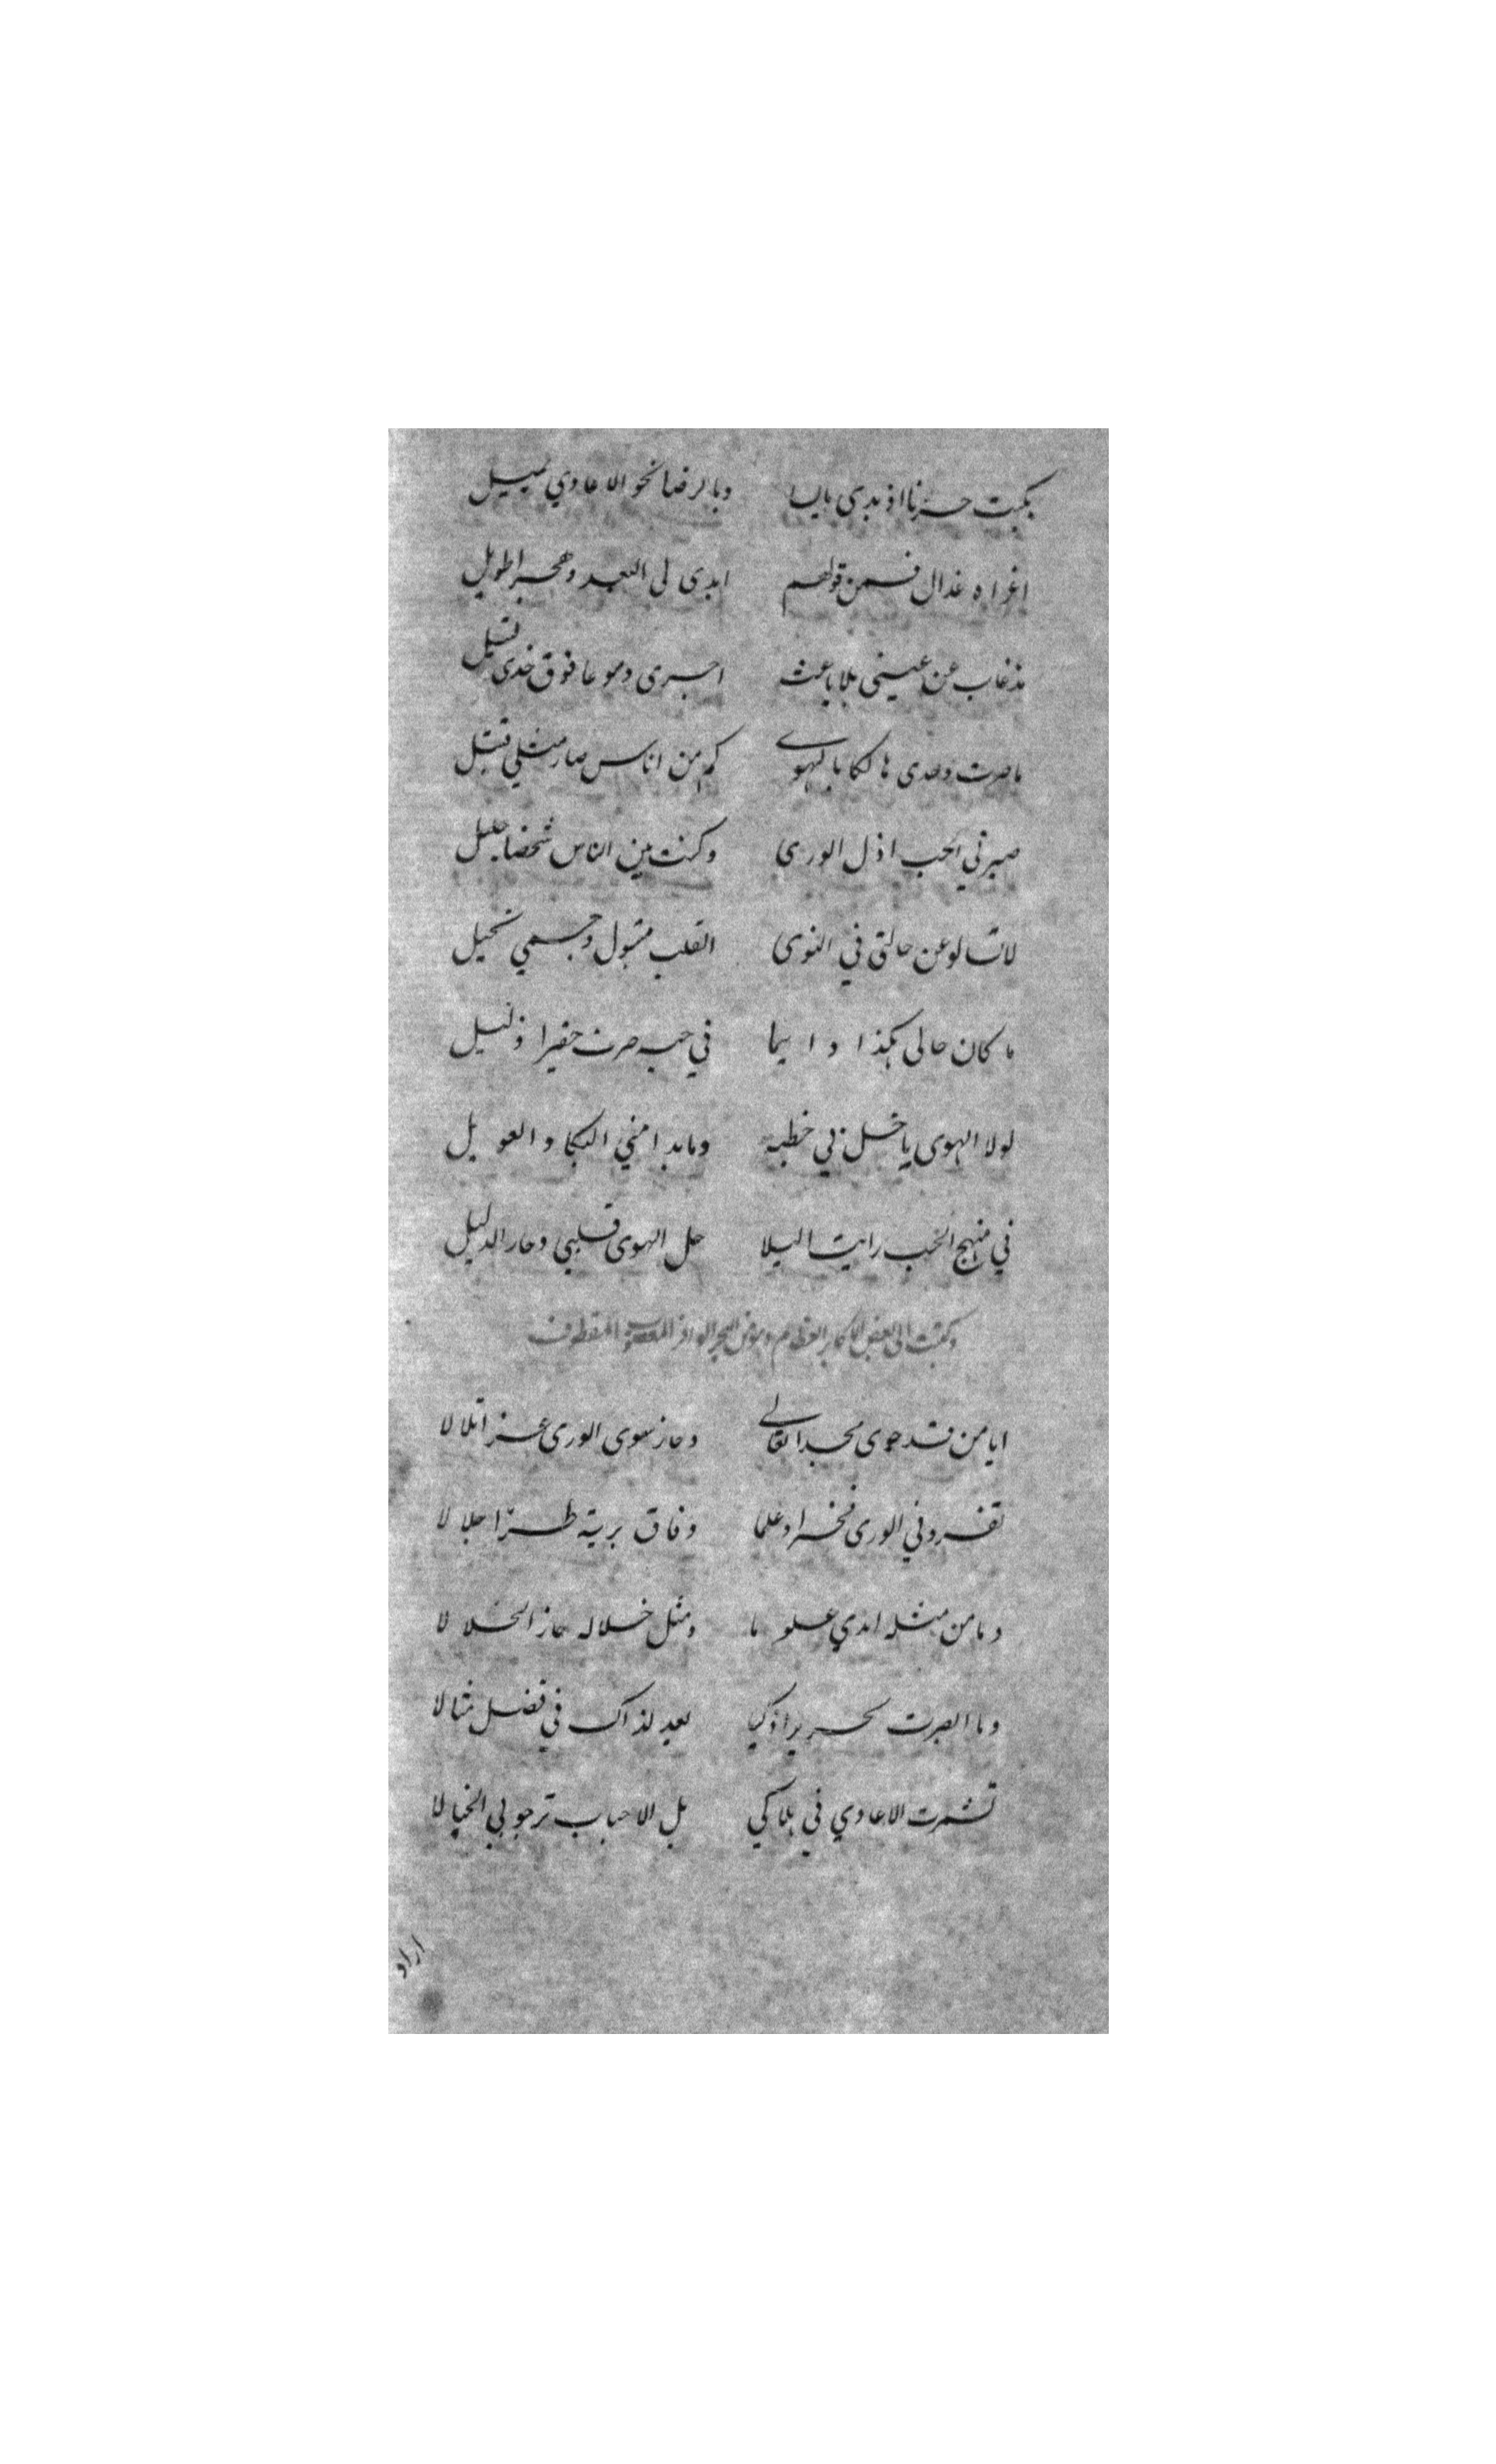 بكيت حزنا اذ بدى يايسا وبالرضا نحو الاعادي يميل
اغراه عذال فمن قولهم ابدى لى البعد وهجرا طويل
مذ غاب عن عينى بلا باعث اجرى دموعا فوق خدى تسيل
ما صرت وحدى هالكا بالهوى كم من اناس صار مثلي قتيل
صيرني الحب اذل الورى وكنت بين الناس شخصا جليل
لا تسالو عن حالتى في النوى القلب متبول وجسمي نحيل
ما كان حالى هكذا دايما في حبه صرت حقيرا ذليل
لولا الهوى يا خل بي خطبه وما بدا مني البكا والعويل
في منهج الحب رايت البلا حل الهوى قلبي وحار الدليل
وكتبت الى بعض الاكابر العظام وهو من البحر الوافر المعصوب المقطوف
ايا من قد حوى مجدا تعالى وحاز سوى الورى عزا تلالا
تفرد في الورى فخرا وعلما وفاق برية طرّا جلالا
وما من مثله ابدي علوما ومثل خلاله حاز الخلالا
وما ابصرت نحريرا ذكيا بعيد لذاك في فضل مثالا
تشمرت الاعادي في هلاكي بل الاحباب ترجو بي الخبالا
اراد